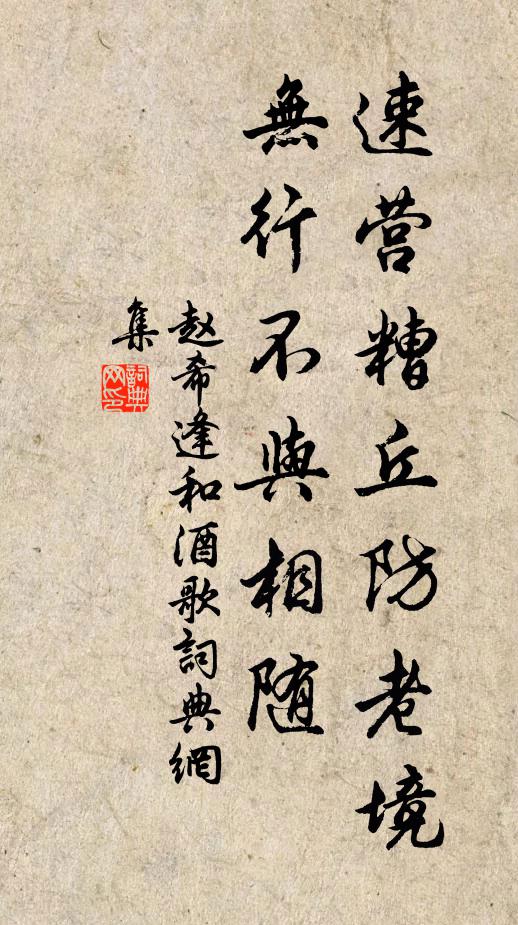 速营糟丘防老境
無行不與相随
赵希逢和酒歌詞典網
集
詞典
网印